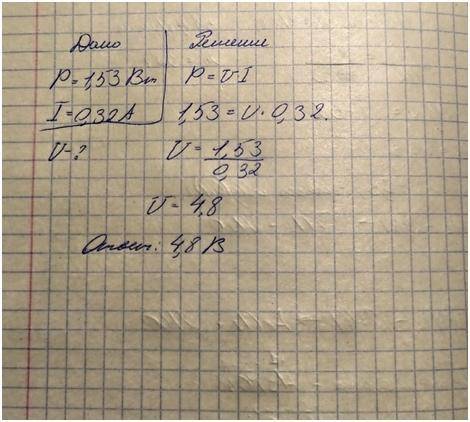 Дано Решение
P=1,53 Вт P=U·I
I=0,32А 1,53=U·0,32.
U-? U= 1,53
0,32
U=4,8
Ответ: 4,8 В